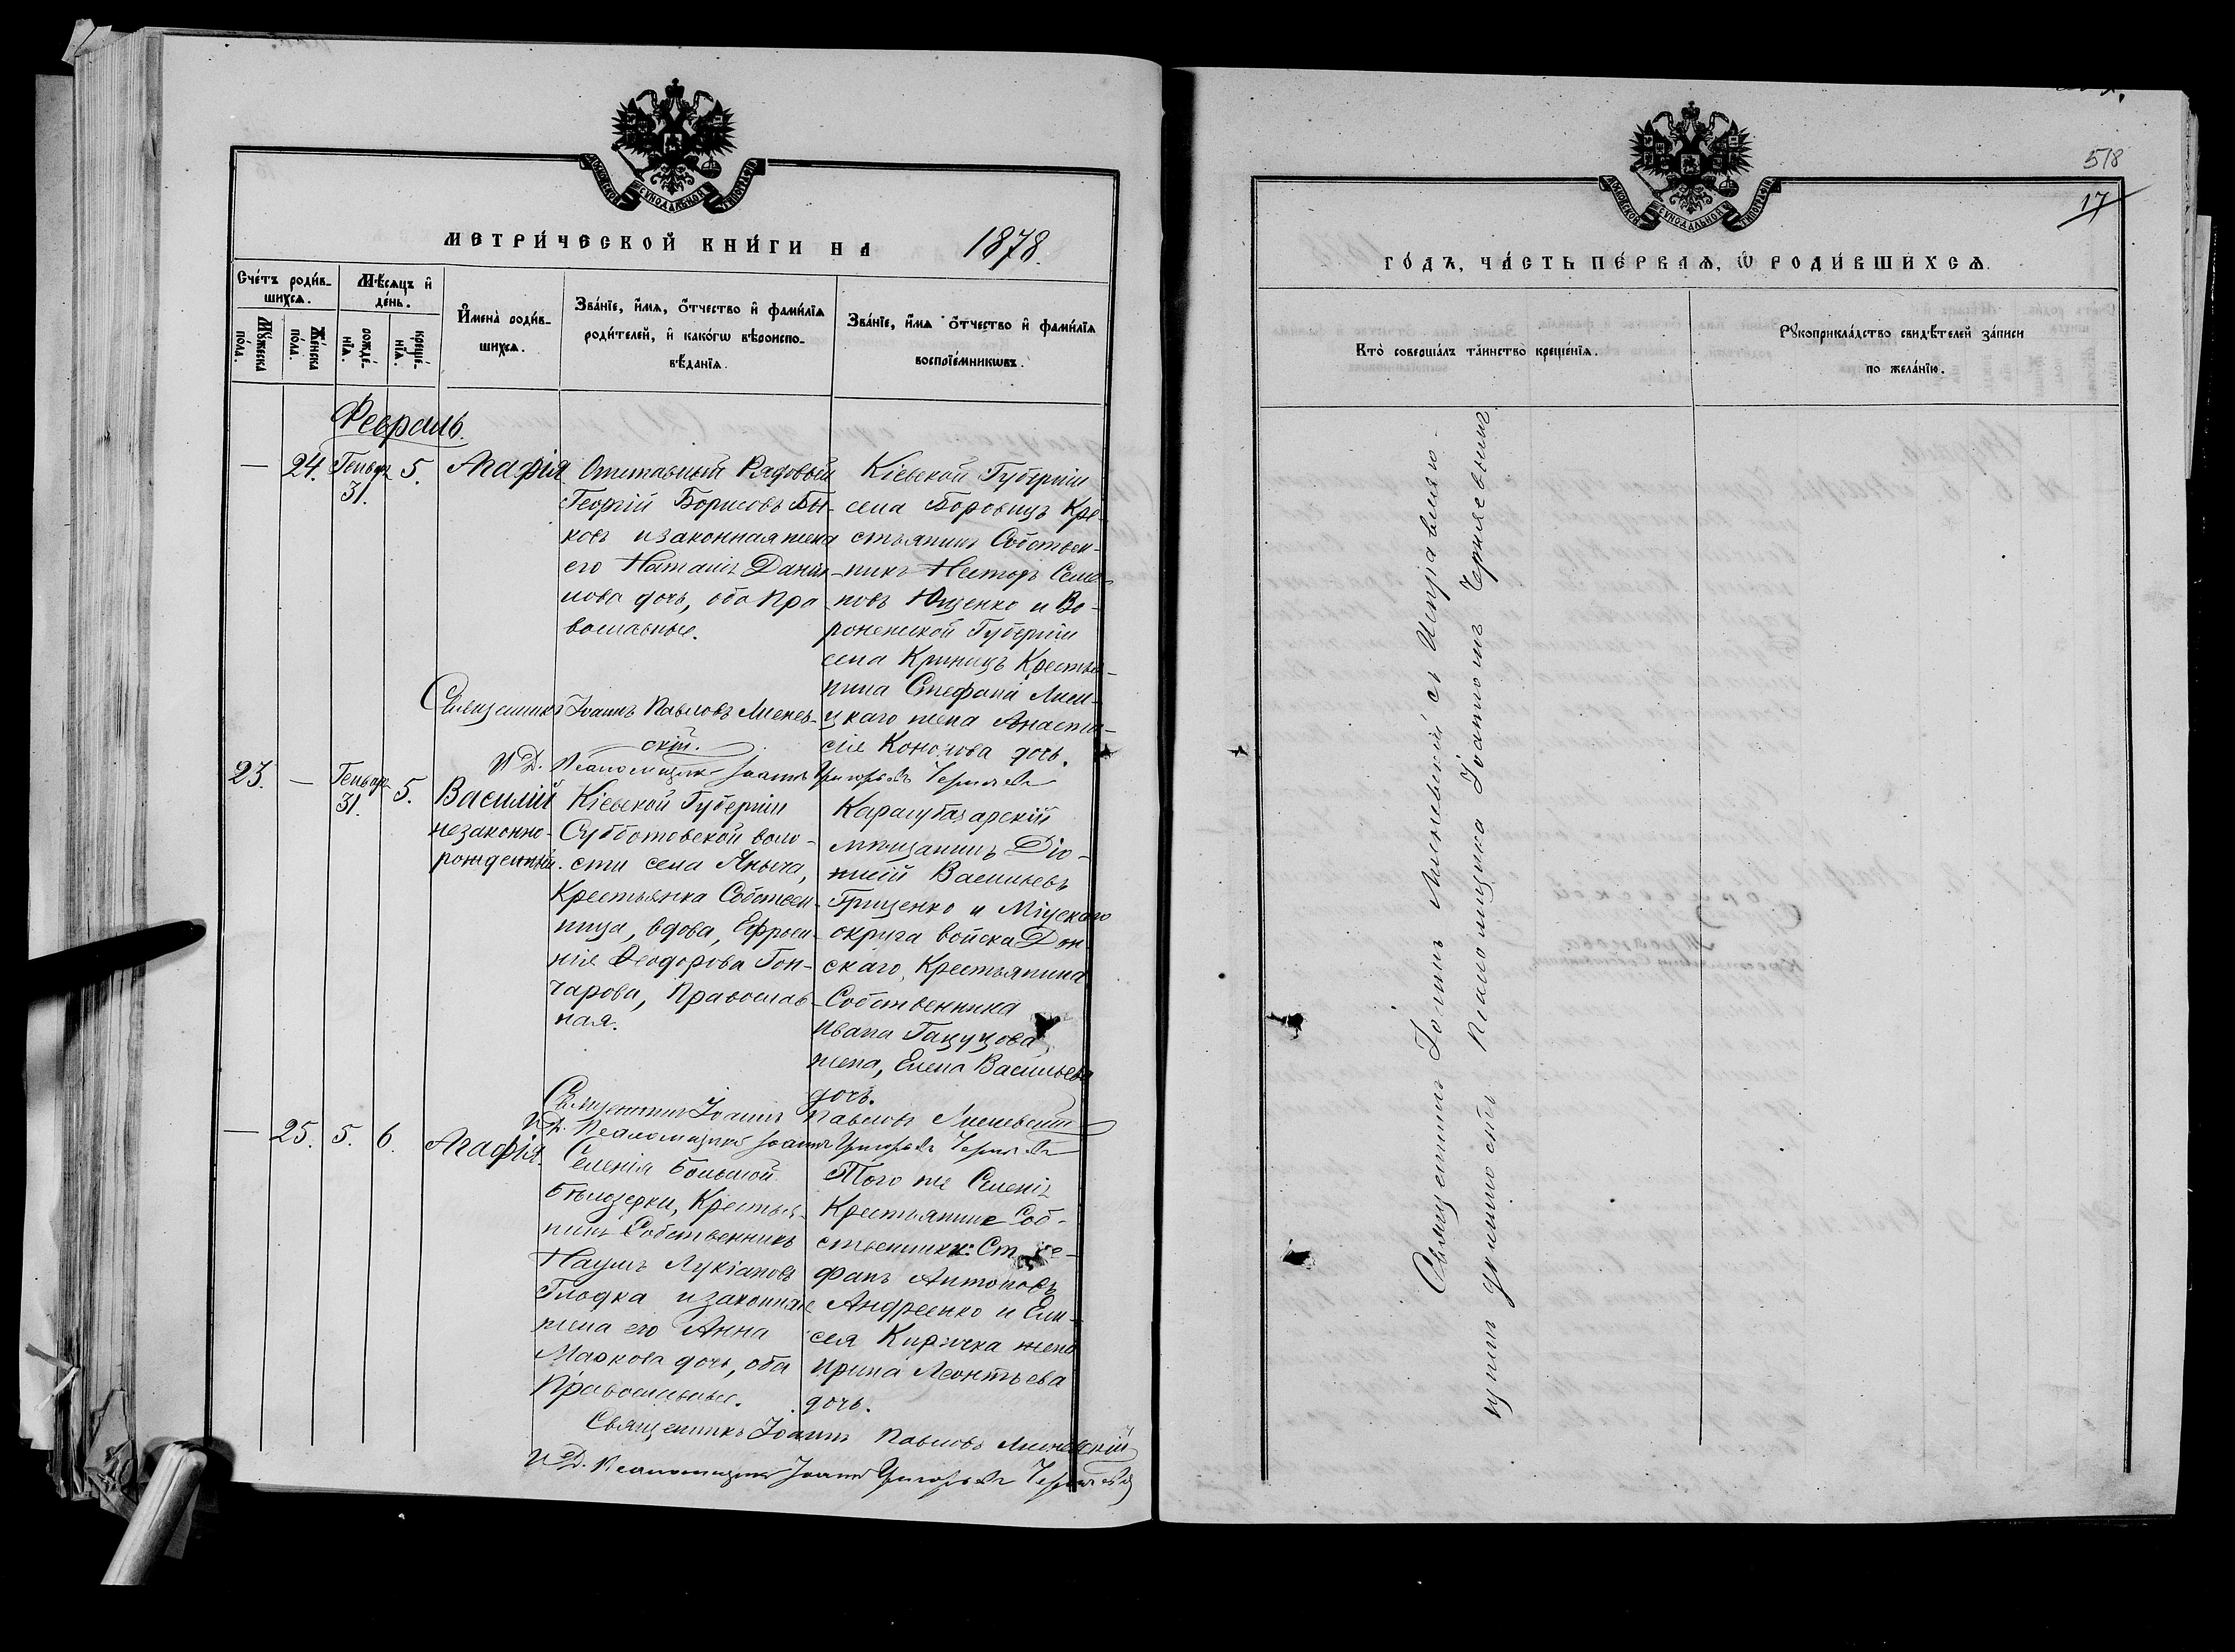 МОСКОВСКОЙ СУНОДАЛЬНОЙ ТИПОГРАФІИ
МЕТРИ́ЧЕСКОЙ КНИ́ГИ НА 1878.
Сче́тъ роди́в-
шихсѧ.
Мѣ́сяцъ и҆
де́нь.
И҆мена̀ роди́в-
шихсѧ.
Зва́нїе, и҆́мѧ, ѻ҆́тчество и҆ фами́лїѧ
роди́телей, и҆ како́гѡ вѣроиспо-
вѣ́данїѧ.
Зва́нїе, и҆́мѧ ѻ҆́тчество и҆ фами́лїѧ
воспрїе́мникѡвъ.
Мꙋ́жеска
по́ла.
Же́нска
по́ла.
рожде́-
нїѧ.
креще́-
нїѧ.
Февраль.
— 24. Генвар 31. 5. Агафія
Отставный Рядовый
Георгій Борисовъ Бы-
ковъ и законная жена
его Наталія Данiи-
лова дочь, оба Пра
вославные.
Кіевской Губерніи
села Боровицъ Кре-
стьянинъ Собствен-
никъ Несторъ Семе-
новъ Ющенко и Во-
ронежской Губерніи
села Криницъ Крестья-
нина Стефана Лиси-
цкаго жена Анаста-
сія Кононова дочь.
Священникъ Іоаннъ Павловъ Лиснев-
скій.
И. Д. Псаломщика Іоаннъ Григорьевъ Чернявъ
23. — Генвар 31. 5. Василій
незаконно-
рожденный.
Кіевской Губерніи
Субботовской воло-
сти села Яныча,
Крестьянка Собствен-
ница, вдова, Ефроси-
нія Ѳеодорова Гон-
чарова, Православ-
ная.
Карасубазарскій
мѣщанинъ Діо-
нисій Васильевъ
Гриценко и Міускаго
округа войска Дон
скаго, Крестьянина
Собственника
Ивана Гацуцова
жена, Елена Васильева
дочь.
Священникъ Іоаннъ Павловъ Лисневскій
И. Д. Псаломщика Іоаннъ Григорьевъ Чернявъ
— 25. 5. 6. Агафія.
Селенія Большой
Бѣлозерки, Крестья-
нинъ Собственникъ
Наумъ Лукіановъ
Глодка и законная
жена его Анна
Маркова дочь, оба
Православные.
Того же Селенія
Крестьянине Соб-
ственники: Сте-
фанъ Антоновъ
Андреенко и Ели-
сея Киричка жена
Ирина Леонтьева
дочь.
Священникъ Іоаннъ Павловъ Лисневскій
И. Д. Псаломщика Іоаннъ Григорьевъ Чернявъ
518
17
МОСКОВСКОЙ СУНОДАЛЬНОЙ ТИПОГРАФІИ
ГО́ДЪ, ЧА́СТЬ ПЕ́РВАѦ, Ѡ҆ РОДИ́ВШИХСѦ.
Кто̀ соверша́лъ та́инство креще́нїѧ.
Рꙋкоприкла́дство свидѣ́телей за́писи
по жела́нїю.
Священникъ Іоаннъ Лисневскій съ Исправляю-
щимъ должность Псаломщика Іоанномъ Чернявскимъ